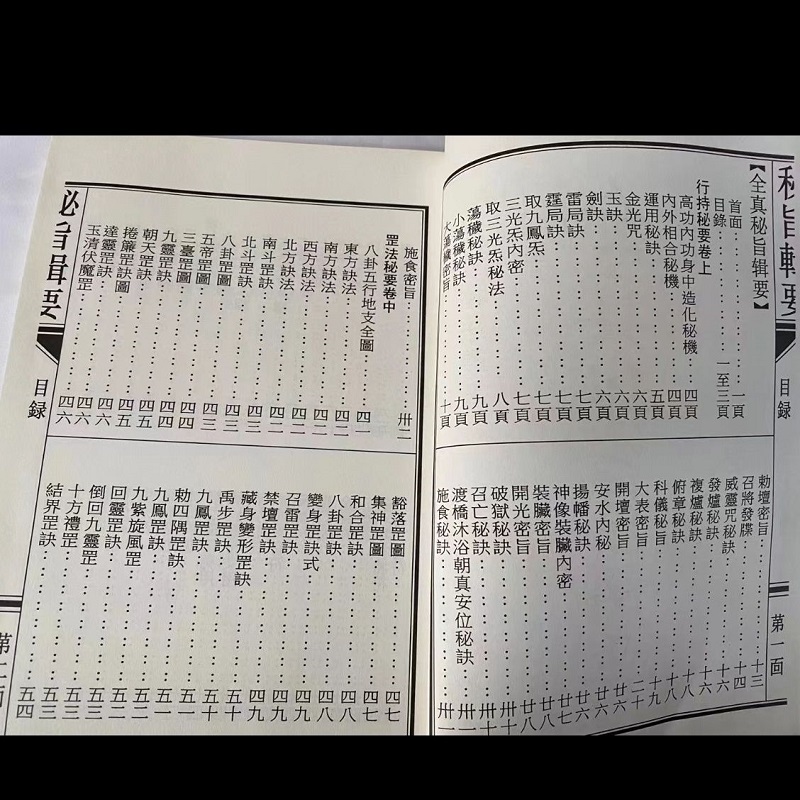 秘旨輯要
目録
第一面
【全真秘旨辑要】
首面··········一頁
目錄··········一至三頁
行持秘要卷上
高功內功身中造化秘機····四頁
內外相合秘機··········四頁
運用秘訣··········五頁
金光咒··········六頁
玉訣··········六頁
劍訣··········六頁
雷局訣··········七頁
霆局訣··········七頁
取九鳳炁··········七頁
三光炁內密··········七頁
取三光炁秘法··········八頁
蕩穢秘訣··········九頁
小蕩穢秘訣··········九頁
大蕩穢秘旨··········十頁
勅壇密旨··········十三
召將發牒··········十四
威靈咒秘訣··········十六
發爐秘訣··········十六
複爐秘訣··········十八
俯章秘訣··········十八
科儀秘旨··········十九
大表密旨··········二十
開壇密旨··········廿六
安水內秘··········廿六
揚幡秘訣··········廿七
神像裝臟內密··········廿八
裝臟密旨··········廿八
開光密旨··········廿八
破獄秘訣··········卅十
召亡秘訣··········卅十
渡橋沐浴朝真安位秘訣····卅一
施食秘訣··········卅一
施食密旨··········卅二
罡法秘要卷中
八卦五行地支全圖····四一
東方訣法··········四二
南方訣法··········四二
西方訣法··········四二
北方訣法··········四二
南斗罡訣··········四二
北斗罡訣··········四三
八卦罡圖··········四三
五帝罡圖··········四三
三臺罡圖··········四四
九靈罡訣··········四四
朝天罡訣··········四五
捲簾罡訣圖··········四五
達靈罡訣··········四六
玉清伏魔罡··········四六
豁落罡圖··········四七
集神罡圖··········四七
和合罡訣··········四八
八卦罡訣··········四八
變身罡訣式··········四九
召雷罡訣··········四九
禁壇罡訣··········四九
藏身變形罡訣··········四九
禹步罡訣··········五十
九鳳罡訣··········五十
勅四隅罡訣··········五一
九鳳罡訣··········五一
九紫旋風罡··········五二
回靈罡訣··········五二
倒回九靈罡··········五三
十方禮罡··········五三
結界罡訣··········五四
秘旨輯要
目録
第二面